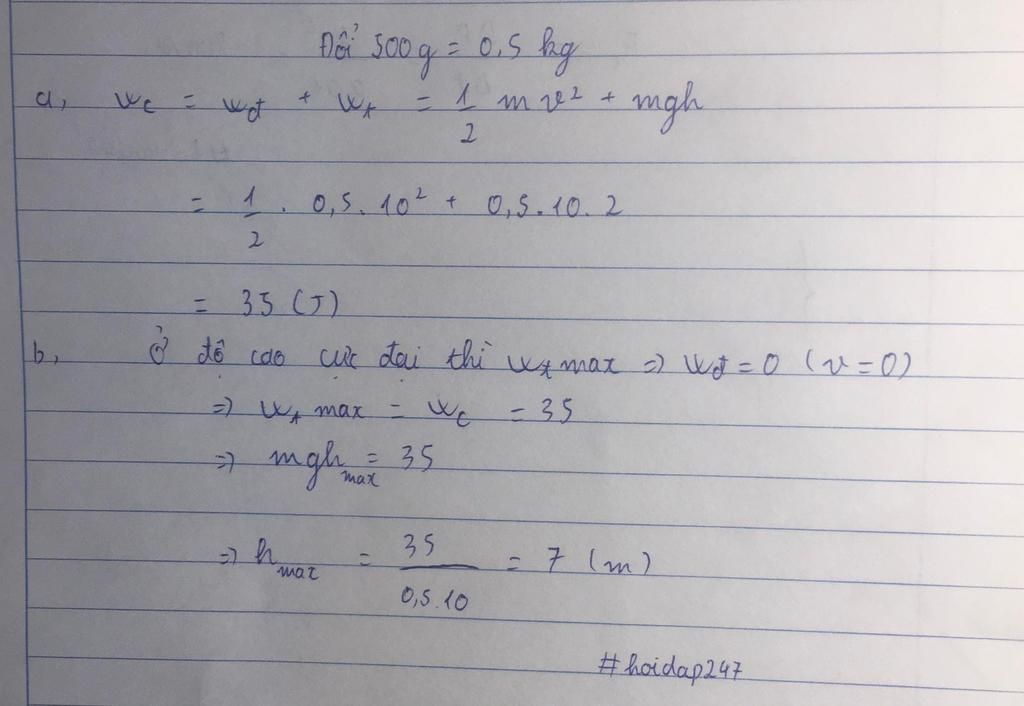 Đổi 500g = 0,5 kg
a, Wc = Wđ + Wt = 1/2 mv² + mgh
= 1/2 . 0,5 . 10² + 0,5 . 10 . 2
= 35 (J)
b, Ở độ cao cực đại thì Wt max => Wđ = 0 (v = 0)
=> Wt max = Wc = 35
=> mgh max = 35
=> h max = 35/0,5.10 = 7 (m)
#hoidap247